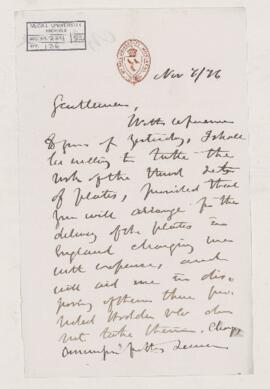 McGILL UNIVERSITY
ARCHIVES
136
Nov 7/76
Gentlemen,
With reference
to yours of yesterday, I shall
be willing to take the
risk of the third
of plates, provided that
you will arrange for the
delivery of the plates in
England charging me
with expense, and
will aid me in dis-
posing of them there pro-
vided Hodder &c do
not take them.